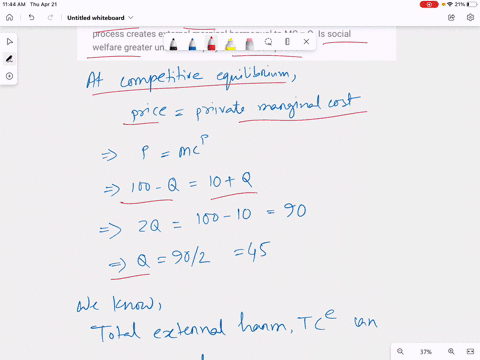 11:44 AM Thu Apr 21
21%
Untitled whiteboard
process creates external marginal harm equal to MC = Q. Is social
welfare greater un
At competitive equilibrium,
price = private marginal cost
⇒ P = MC^P
⇒ 100 - Q = 10 + Q
⇒ 2Q = 100 - 10 = 90
⇒ Q = 90/2 = 45
We know,
Total external harm, TC^e can
37%